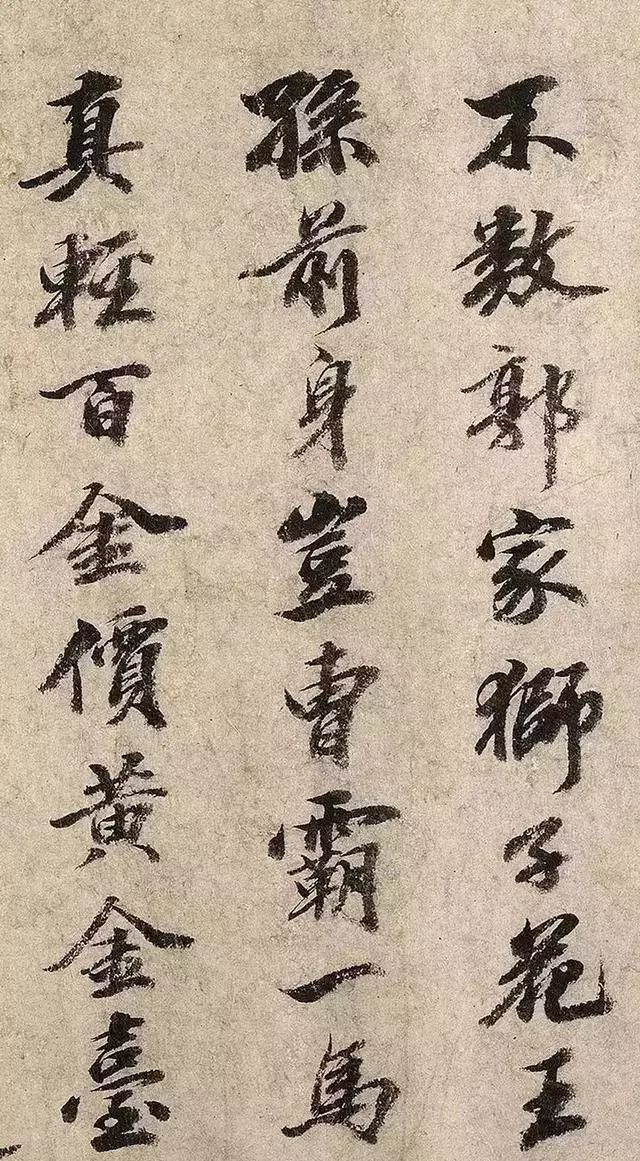 不数郭家獅子花王
孫前身豈曹霸一馬
真輕百金價黄金臺